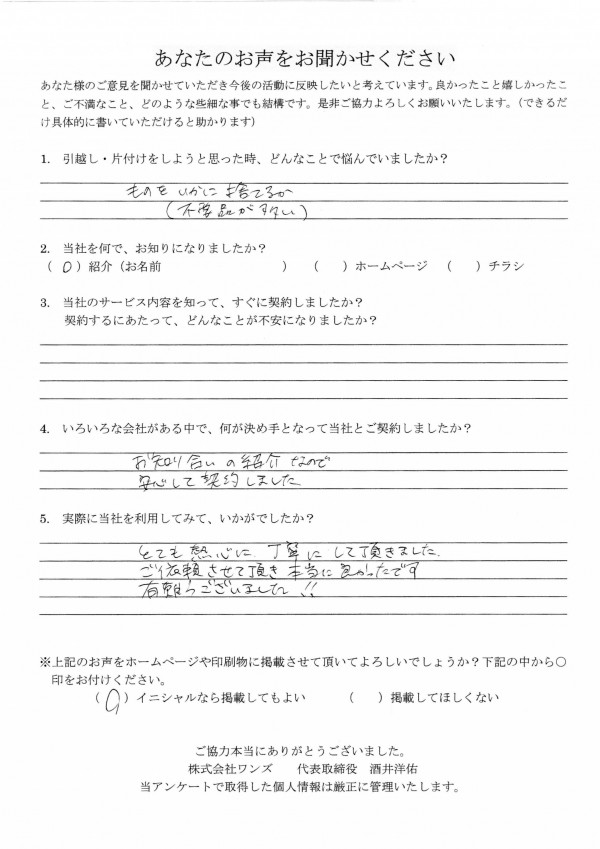 あなたのお声をお聞かせください
あなた様のご意見を聞かせていただき今後の活動に反映したいと考えています。良かったこと嬉しかったこ
と、ご不満なこと、どのような些細な事でも結構です。是非ご協力よろしくお願いいたします。（できるだ
け具体的に書いていただけると助かります）
1. 引越し・片付けをしようと思った時、どんなことで悩んでいましたか？
ものをいかに捨てるか
（不要品が多い）
2. 当社を何で、お知りになりましたか？
（ ○ ）紹介（お名前 ） （ ）ホームページ （ ）チラシ
3. 当社のサービス内容を知って、すぐに契約しましたか？
契約するにあたって、どんなことが不安になりましたか？
4. いろいろな会社がある中で、何が決め手となって当社とご契約しましたか？
お知り合いの紹介なので
安心して契約しました
5. 実際に当社を利用してみて、いかがでしたか？
とても熱心に丁寧にして頂きました。
ご依頼させて頂き本当に良かったです
有難うございました!!
※上記のお声をホームページや印刷物に掲載させて頂いてよろしいでしょうか？下記の中から○
印をお付けください。
（ ○ ）イニシャルなら掲載してもよい （ ）掲載してほしくない
ご協力本当にありがとうございました。
株式会社ワンズ 代表取締役 酒井洋佑
当アンケートで取得した個人情報は厳正に管理いたします。